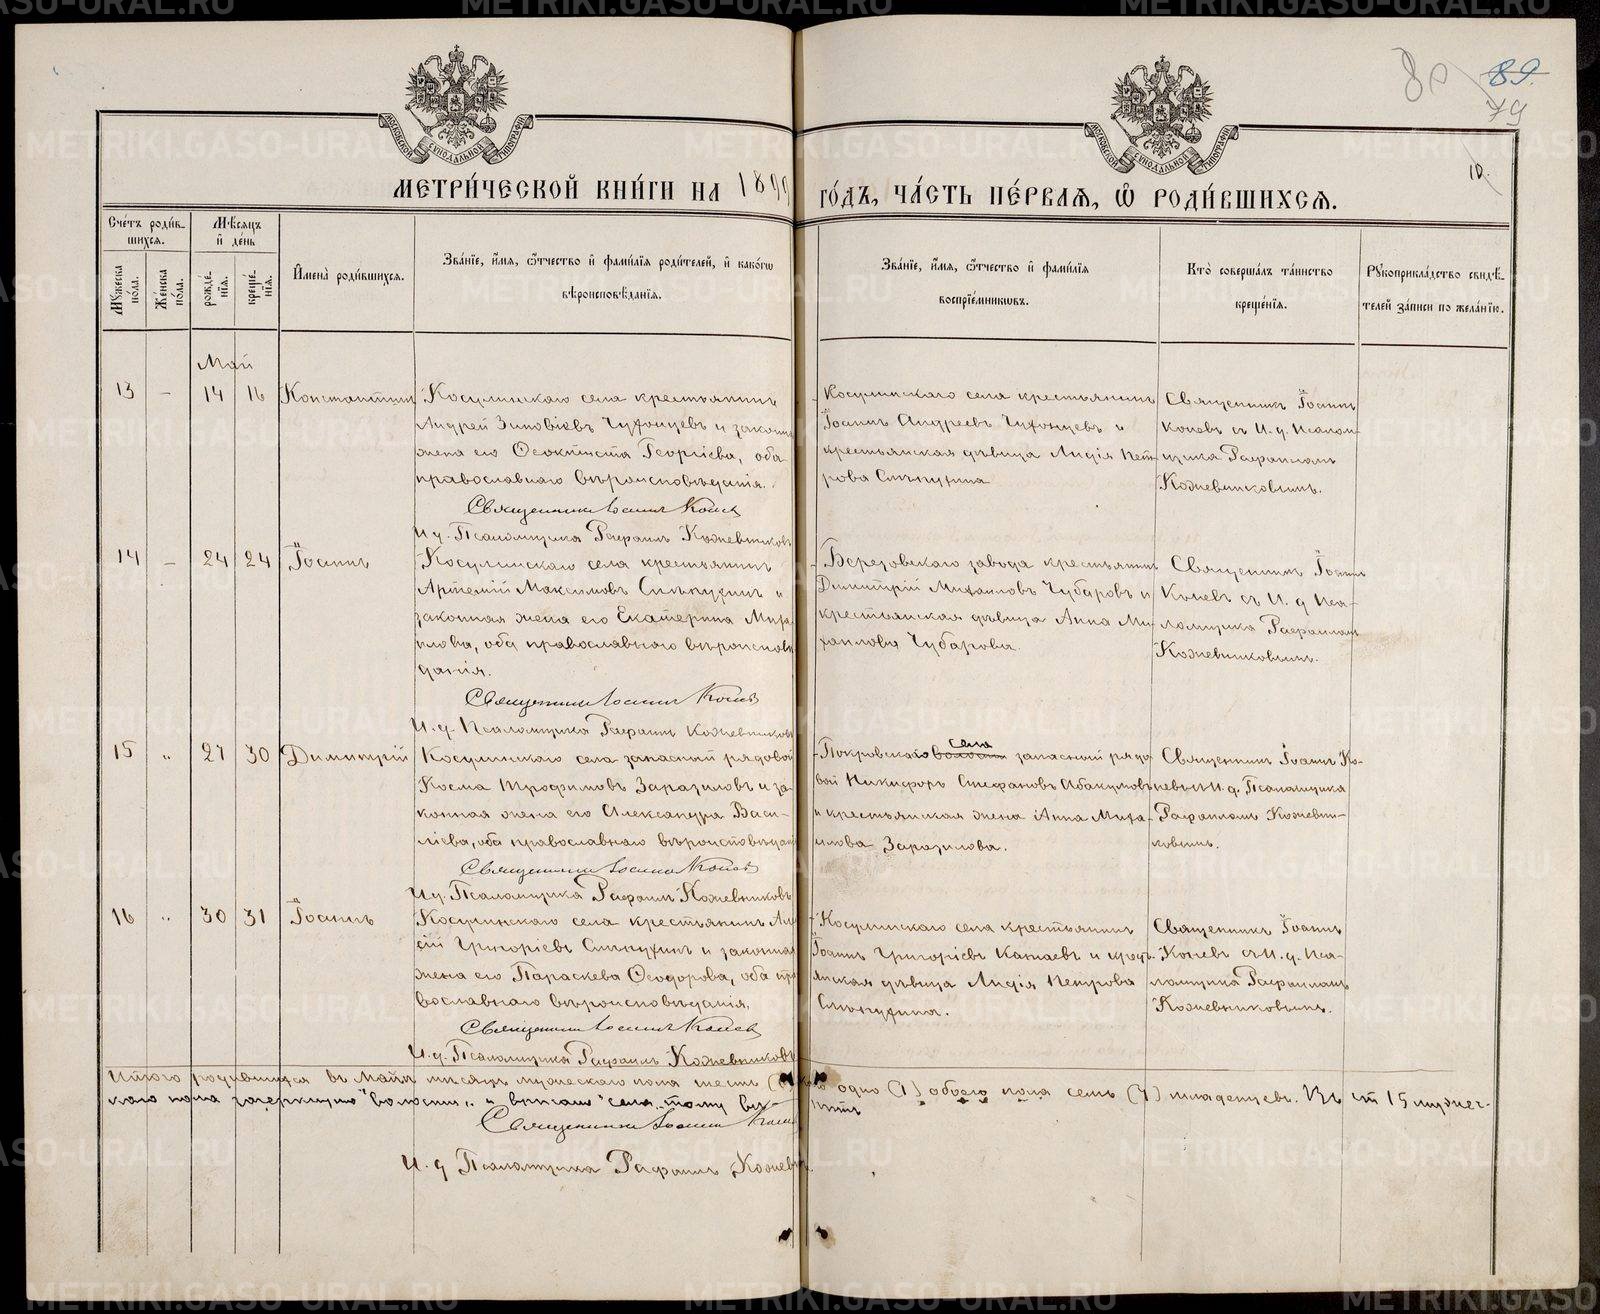 80 89. 79
10.
МОСКОВСКОЙ СУНОДАЛЬНОЙ ТИПОГРАФІИ
МОСКОВСКОЙ СУНОДАЛЬНОЙ ТИПОГРАФІИ
МЕТРИ́ЧЕСКОЙ КНИ́ГИ НА 1899 ГО́ДЪ, ЧА́СТЬ ПЕ́РВАѦ, Ѽ РОДИ́ВШИХСѦ.
Сче́тъ роди́в-
шихсѧ.
Мꙋжеска по́ла.
Же́нска по́ла.
Мѣ́сѧцъ
и҆ де́нь
рожде́нїѧ.
креще́нїѧ.
И҆мена̀ роди́вшихсѧ.
Зва́нїе, и҆́мѧ, ѻ҆́тчество и҆ фами́лїѧ роди́телей, и҆ како́гѡ
вѣроисповѣ́данїѧ.
Зва́нїе, и҆́мѧ, ѻ҆́тчество и҆ фами́лїѧ
воспрїе́мникѡвъ.
Кто̀ соверша́лъ та́инство
креще́нїѧ.
Рꙋкоприкла́дство свидѣ́-
телей за́писи по жела́нїю.
Май
13 – 14 16 Константинъ
Косулинскаго села крестьянинъ
Андрей Зиновіевъ Чухонцевъ и законная
жена его Ѳеоктиста Георгіева, оба
православнаго вѣроисповѣданія.
Священникъ Іоаннъ Коневъ
И. д. Псаломщика Рафаилъ Кожевниковъ
Косулинскаго села крестьянинъ
Іоаннъ Андреевъ Чухонцевъ и
крестьянская дѣвица Лидія Пет-
рова Слѣпухина
Священникъ Іоаннъ
Коневъ съ И. д. Псалом-
щика Рафаиломъ
Кожевниковымъ.
14 – 24 24 Іоаннъ
Косулинскаго села крестьянинъ
Артемій Максимовъ Слѣпухинъ и
законная жена его Екатерина Миха
илова, оба православнаго вѣроисповѣ
данія.
Священникъ Іоаннъ Коневъ
И. д. Псаломщика Рафаилъ Кожевниковъ
Березовскаго завода крестьянинъ
Димитрій Михаиловъ Чубаровъ и
крестьянская дѣвица Анна Ми-
хаилова Чубарова.
Священникъ Іоаннъ
Коневъ съ И. д Пса-
ломщика Рафаиломъ
Кожевниковымъ.
15 „ 27 30 Димитрій
Косулинскаго села запасный рядовой
Косма Трофимовъ Заразиловъ и за-
конная жена его Александра Васи-
ліева, оба православнаго вѣроисповѣдан
Священникъ Іоаннъ Коневъ
И. д. Псаломщика Рафаилъ Кожевниковъ
села
Покровской волости запасный рядо-
вой Никифоръ Стефановъ Абакумовъ
и крестьянская жена Анна Миха-
илова Заразилова.
Священникъ Іоаннъ Ко-
невъ и И. д. Псаломщика
Рафаиломъ Кожевни-
ковымъ.
16 „ 30 31 Іоаннъ
Косулинскаго села крестьянинъ
Григоріевъ Слѣпухинъ и законная
жена его Параскева Ѳеодорова, оба пра
вославнаго вѣроисповѣданія.
Священникъ Іоаннъ Коневъ
И. д. Псаломщика Рафаилъ Кожевниковъ
Косулинскаго села крестьянинъ
Іоаннъ Григорьевъ Канаевъ и крест-
янская дѣвица Лидія Петрова
Слѣпухина.
Священникъ Іоаннъ
Коневъ съ И. д. Пса-
ломщика Рафаиломъ
Кожевниковымъ.
Итого родившихся въ Маѣ мѣсяцѣ мужескаго пола шесть одно (1) обоего пола семь (7) младенцевъ. Въ ст 15 мужес-
каго пола зачеркнуто "волости" и вписано "села" тому вѣ-
рить
Священникъ Іоаннъ Коневъ
И. д Псаломщика Рафаилъ Кожевн